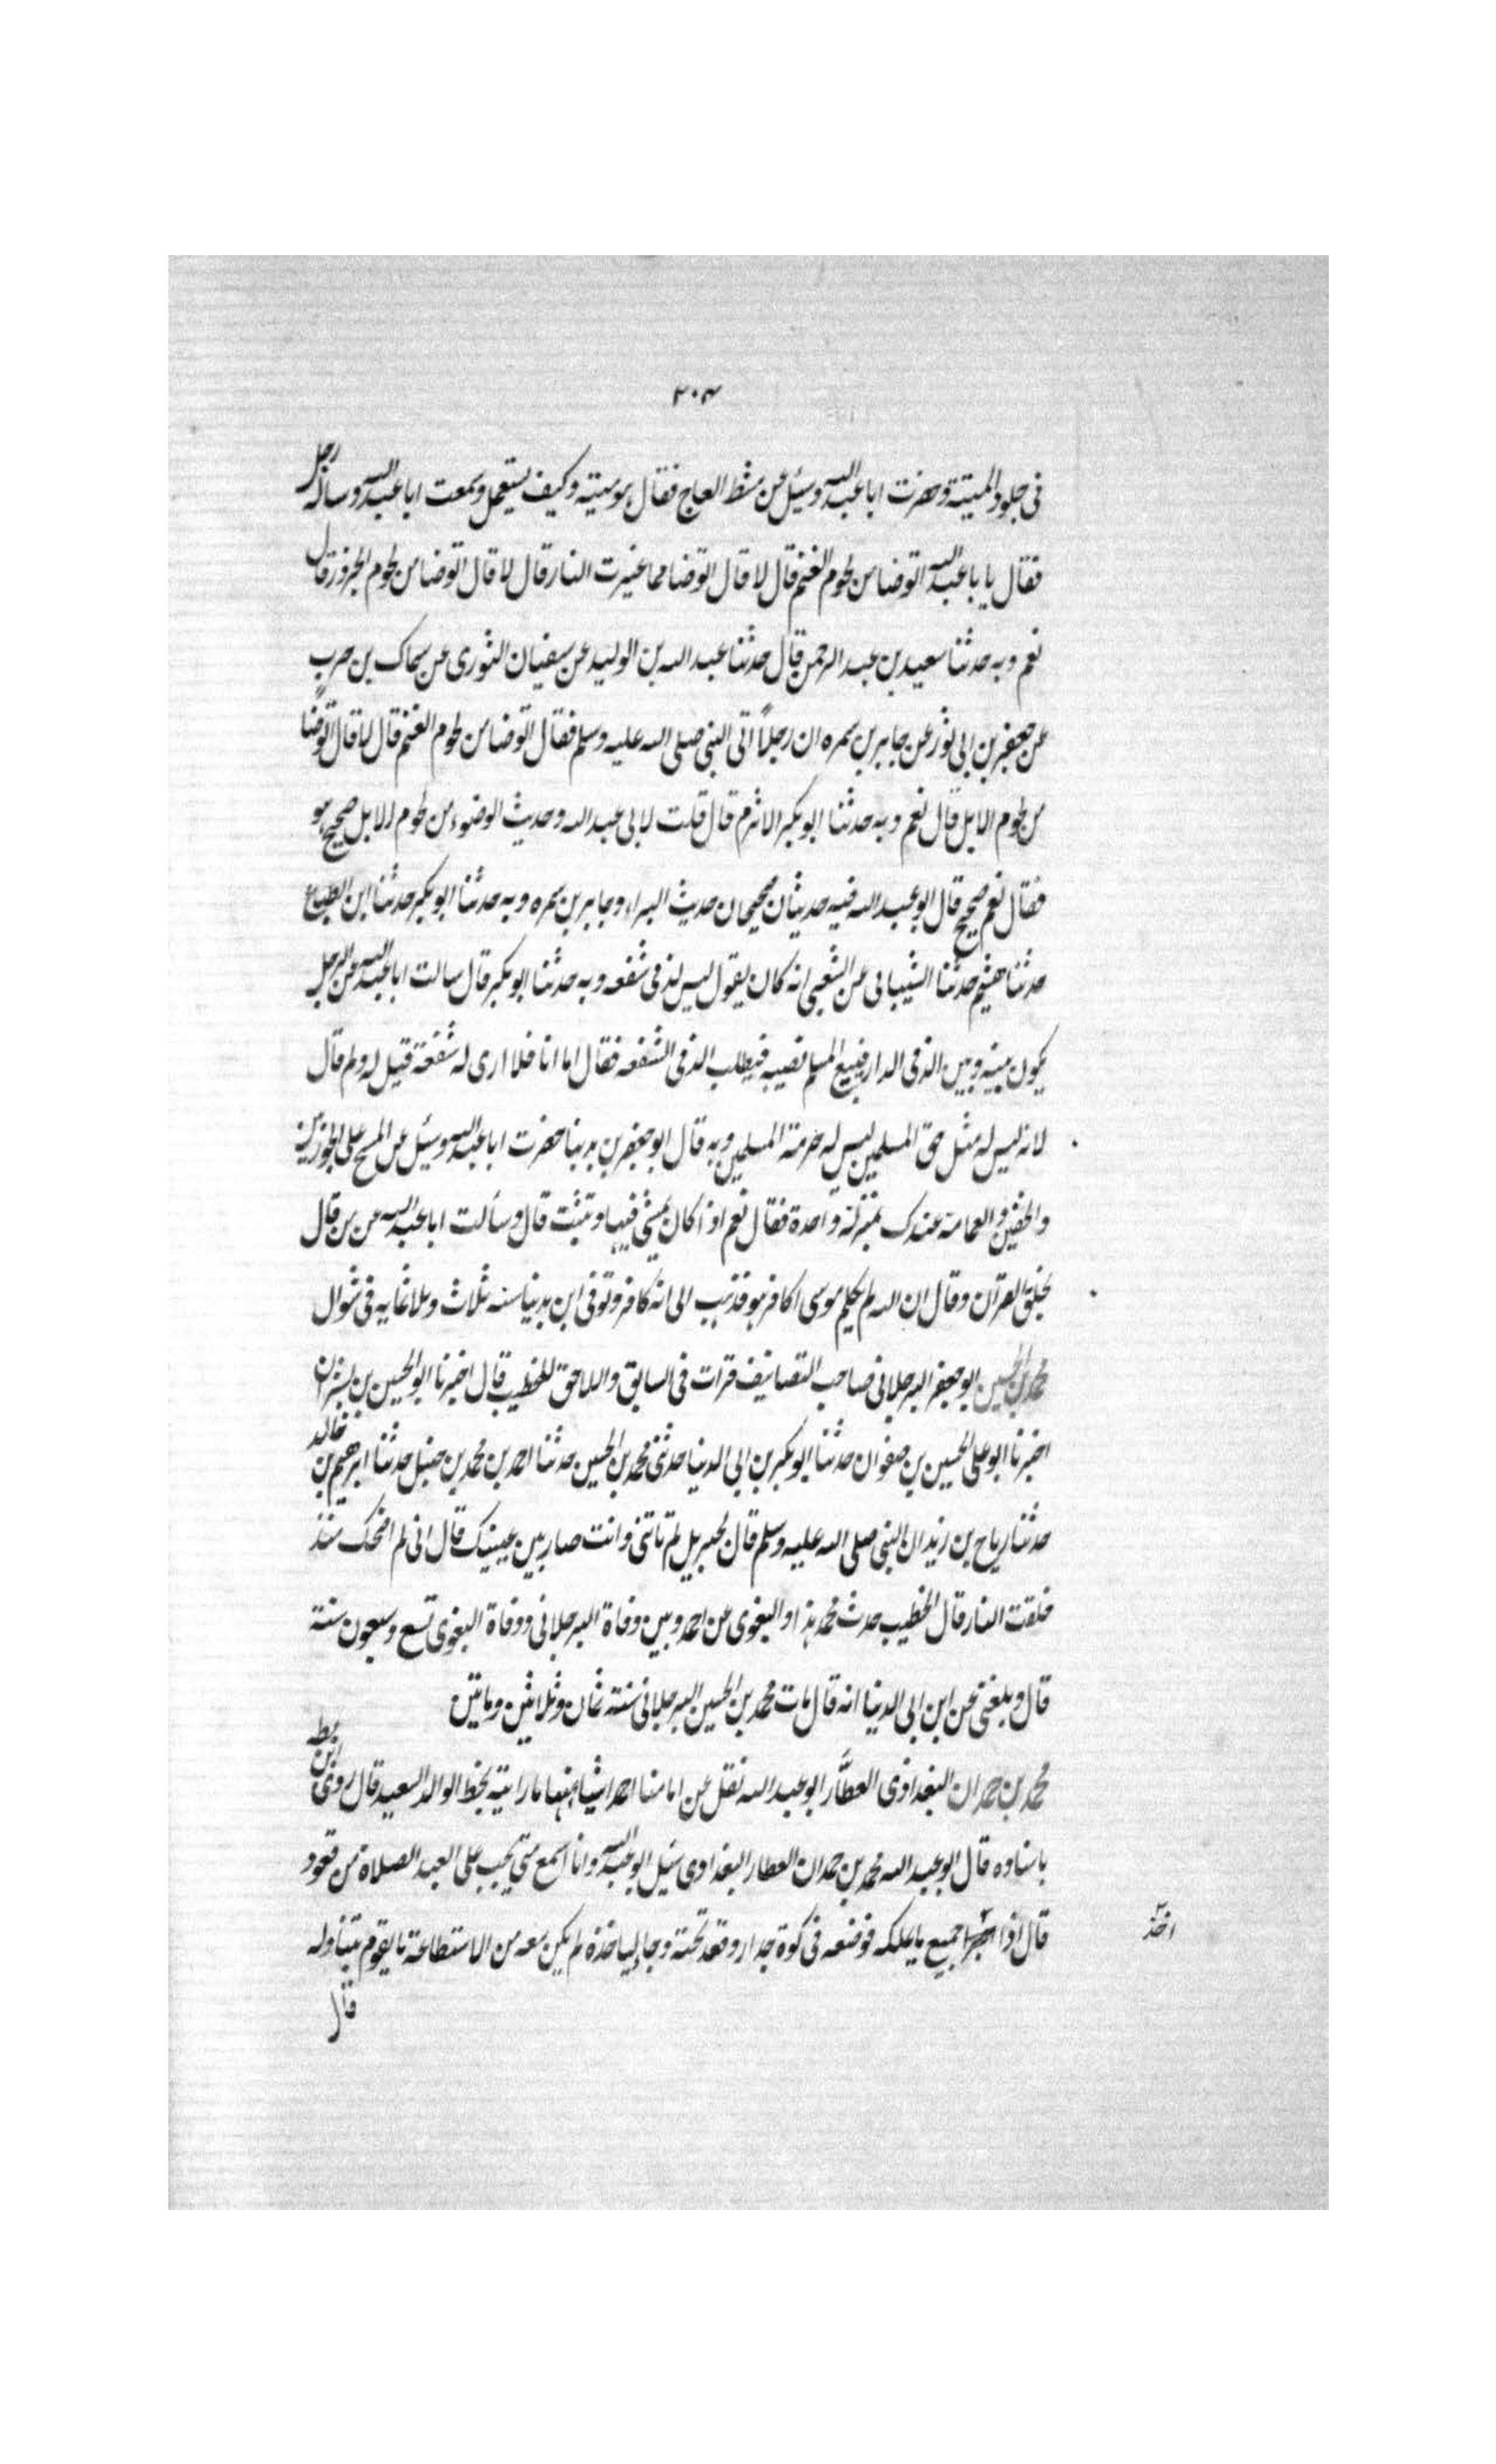 ٣٠٣
في جلود الميتة وحضرت ابا عبد الله وسئل عن مشط العاج فقال هو ميتة وكيف يستعمل وسمعت ابا عبد الله وساله رجل
فقال يا با عبد الله اتوضا من لحوم الغنم قال لا قال اتوضا مما غيرت النار قال لا قال اتوضا من لحوم الجزور قال
نعم وبه حدثنا سعيد بن عبد الرحمن قال حدثنا عبد الله بن الوليد عن سفيان الثوري عن سماك بن حرب
عن جعفر بن ابي ثور عن جابر بن سمره ان رجلاً اتى النبي صلى الله عليه وسلم فقال اتوضا من لحوم الغنم قال لا قال اتوضا
من لحوم الابل قال نعم وبه حدثنا ابو بكر الاثرم قال قلت لابي عبد الله وحديث الوضوء من لحوم الابل صحيح هو
فقال نعم صحيح قال ابو عبد الله فيه حديثان صحيحان حديث البراء وجابر بن سمره وبه حدثنا ابو بكر حدثنا ابن الطباع
حدثنا هشيم حدثنا الشيباني عن الشعبي انه كان يقول ليس لذمي شفعه وبه حدثنا ابو بكر قال سالت ابا عبد الله عن الرجل
يكون بينه وبين الذمي الدار فيبيع المسلم نصيبه فيطلب الذمي الشفعه فقال اما انا فلا ارى له شفعة قيل له ولم قال
لانه ليس له مثل حق المسلمين ليس له حرمة المسلمين وبه قال ابو جعفر بن بدينا حضرت ابا عبد الله وسئل عن المسح على الجوربين
والخفين والعمامة عندك بمنزلة واحدة فقال نعم اذا كان يمشي فيها وتثبت قال وسألت ابا عبد الله عن من قال
بخلق القران وقال ان الله لم يكلم موسى اكافر هو فذهب الى انه كافر وتوفى ابن بدينا سنه ثلاث وثلاثمايه في شوال
محمد بن الحسين ابو جعفر البرجلاني صاحب التصانيف قرات في السابق واللاحق للخطيب قال اخبرنا ابو الحسين بن بشران
اخبرنا ابو علي الحسين بن صفوان حدثنا ابو بكر بن ابي الدنيا حدثني محمد بن الحسين حدثنا احمد بن محمد بن حنبل حدثنا ابرهيم بن خالد
حدثنا رياح بن زيد ان النبي صلى الله عليه وسلم قال لجبريل لم تاتني وانت صار بين عينيك قال اني لم اضحك منذ
خلقت النار قال الخطيب حدث محمد هذا والبغوي عن احمد وبين وفاة البرجلاني ووفاة البغوي تسع وسبعون سنة
قال وبلغني عن ابن ابي الدنيا انه قال مات محمد بن الحسين البرجلاني سنة ثمان وثلاثين وماتين
محمد بن حمدان البغداذي العطّار ابو عبد الله نقل عن امامنا احمد اشيا منها ما رايته بخط الوالد السعيد قال روى ابن بطه
باسناده قال ابو عبد الله محمد بن حمدان العطار البغدادي سئل ابو عبد الله وانا اسمع متى يجب على العبد الصلاة من قعود
قال اذا جميع ما يملكه فوضعه في كوة جدار وقعد تحته وجا ليأخذه لم يكن معه من الاستطاعة ما يقوم يتناوله
اخذ
قال